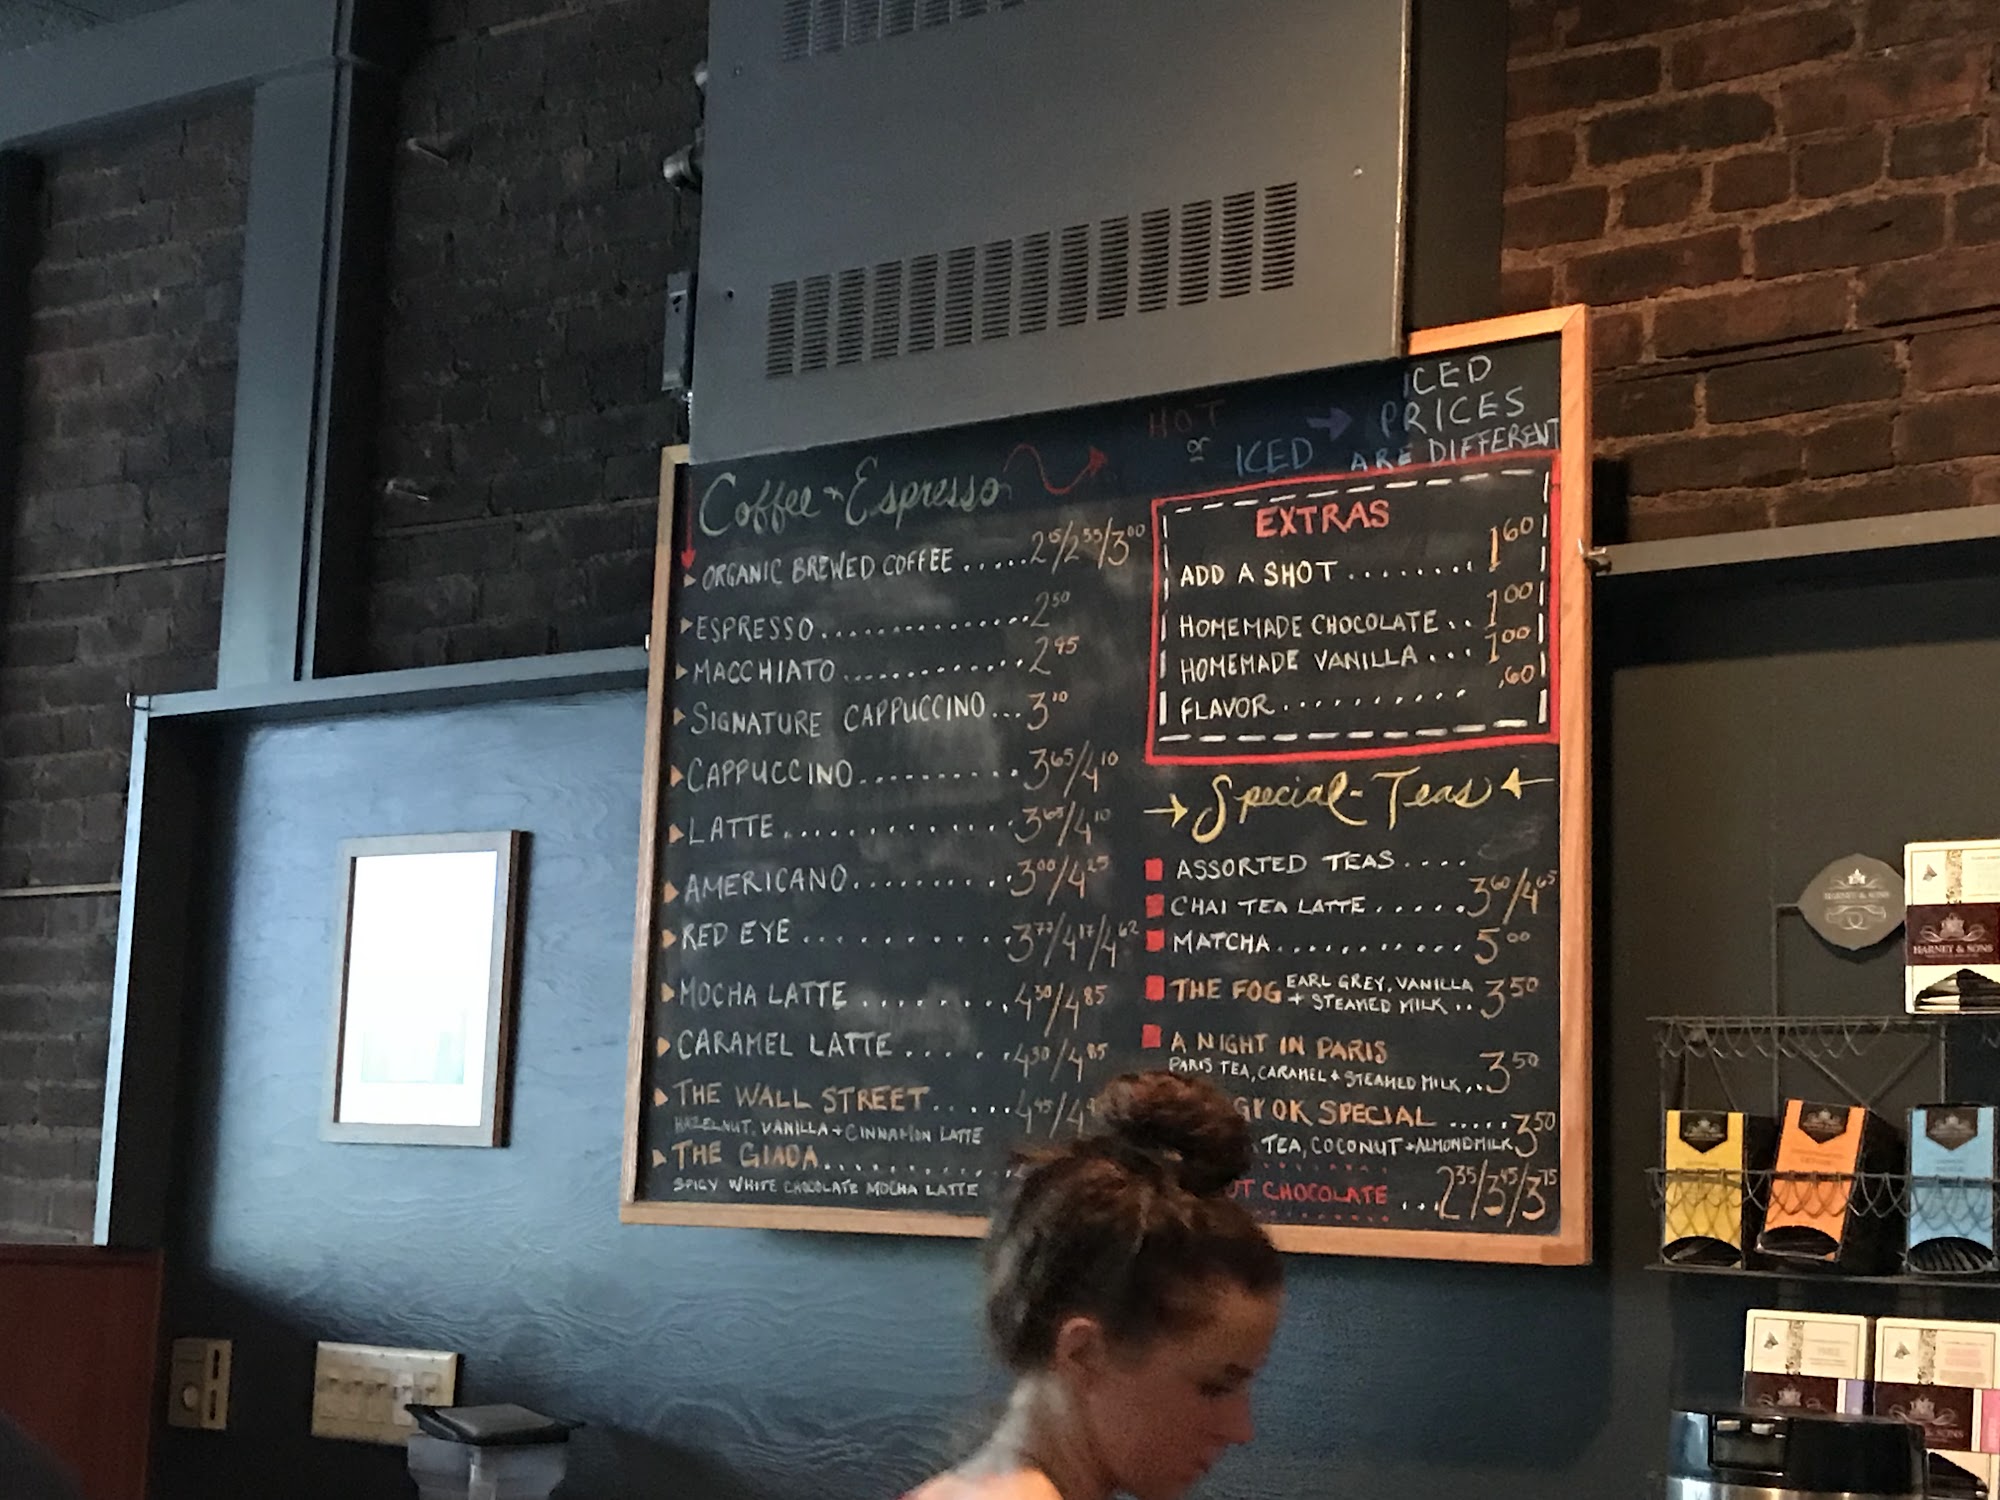 HOT
or
ICED
ICED
PRICES
ARE DIFFERENT
Coffee + Espresso
ORGANIC BREWED COFFEE ..... /3.00
ESPRESSO .............. 2.50
MACCHIATO .......... 2.95
SIGNATURE CAPPUCCINO ... 3.10
CAPPUCCINO .......... 3.65/4.10
LATTE ............. 3.65/4.10
AMERICANO .......... 3.00/4.25
RED EYE .......... 3.77/4.17/4.62
MOCHA LATTE ........ /4.85
CARAMEL LATTE ...... /4.85
THE WALL STREET ......
HAZELNUT, VANILLA + CINNAMON LATTE
THE GIADA ............
SPICY WHITE CHOCOLATE MOCHA LATTE
EXTRAS
ADD A SHOT ........ 1.60
HOMEMADE CHOCOLATE .. 1.00
HOMEMADE VANILLA ... 1.00
FLAVOR .......... .60
Special-Teas
ASSORTED TEAS ....
CHAI TEA LATTE ...... 3.60/4.65
MATCHA ........... 5.00
THE FOG EARL GREY, VANILLA
+ STEAMED MILK .. 3.50
A NIGHT IN PARIS
PARIS TEA, CARAMEL + STEAMED MILK ... 3.50
OK SPECIAL ..... 3.50
TEA, COCONUT + ALMOND MILK
CHOCOLATE ... 2.35/3.45/3.75
HARNEY & SONS
HARNEY & SONS